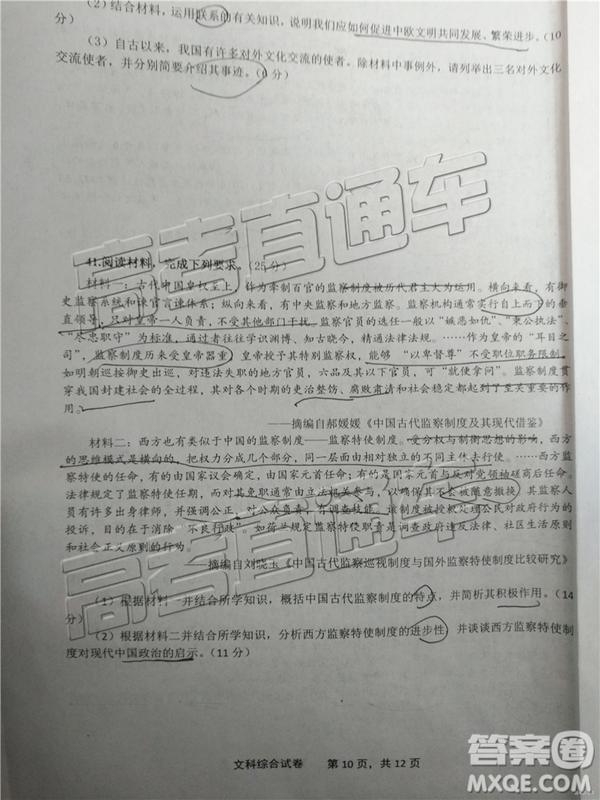 （2）结合材料，运用联系的有关知识，说明我们应如何促进中欧文明共同发展、繁荣进步。（10
分）
（3）自古以来，我国有许多对外文化交流的使者。除材料中事例外，请列举出三名对外文化
交流使者，并分别简要介绍其事迹。（6 分）
41.阅读材料，完成下列要求。（25 分）
材料一：古代中国皇权至上，作为牵制百官的监察制度被历代君主大为运用。横向来看，有御
史监察系统和谏官言谏体系；纵向来看，有中央监察和地方监察。监察机构通常实行自上而下的垂
直领导，只对皇帝一人负责，不受其他部门干扰。监察官员的选任一般以“嫉恶如仇”、“秉公执法”、
“尽忠职守”为标准，通过者往往学识渊博、知古晓今，精通法律法规。……作为皇帝的“耳目之
司”，监察制度历来受皇帝器重，皇帝授予其特别监察权，能够“以卑督尊”不受职位职务限制，
如明朝巡按御史出巡，对违法失职的地方官员，六品及其以下官员，可“就便拿问”。监察制度贯
穿我国封建社会的全过程，其对各个时期的吏治整饬、腐败肃清和社会稳定都起到了至关重要的作
用。
——摘编自郝媛媛《中国古代监察制度及其现代借鉴》
材料二：西方也有类似于中国的监察制度——监察特使制度。受分权与制衡思想的影响，西方
的思维模式是横向的，把权力分成几个部分，同一层面由相对独立的不同主体负责。……西方监
察特使的任命，有的由国家议会确定，由国家元首任命；有的是国家元首与反对党领袖磋商后任命。
法律规定了监察特使的任期，对其免职通常由立法机关参与，以确保其不会被随意撤换）其监察人
员有许多出身律师，并强调公正，对公众负责，有调查技能。该制度被授权处理公民对政府行为的
投诉，目的在于消除“不良行政”。如荷兰规定监察特使职责是调查政府违反法律、社区生活原则
和社会正义原则的行为。
——摘编自刘晓玉《中国古代监察巡视制度与国外监察特使制度比较研究》
（1）根据材料一并结合所学知识，概括中国古代监察制度的特点，并简析其积极作用。（14
分）
（2）根据材料二并结合所学知识，分析西方监察特使制度的进步性，并谈谈西方监察特使制
度对现代中国政治的启示。（11 分）
文科综合试卷 第 10 页，共 12 页
高考直通车
高考直通车
答案圈
MXQE.COM